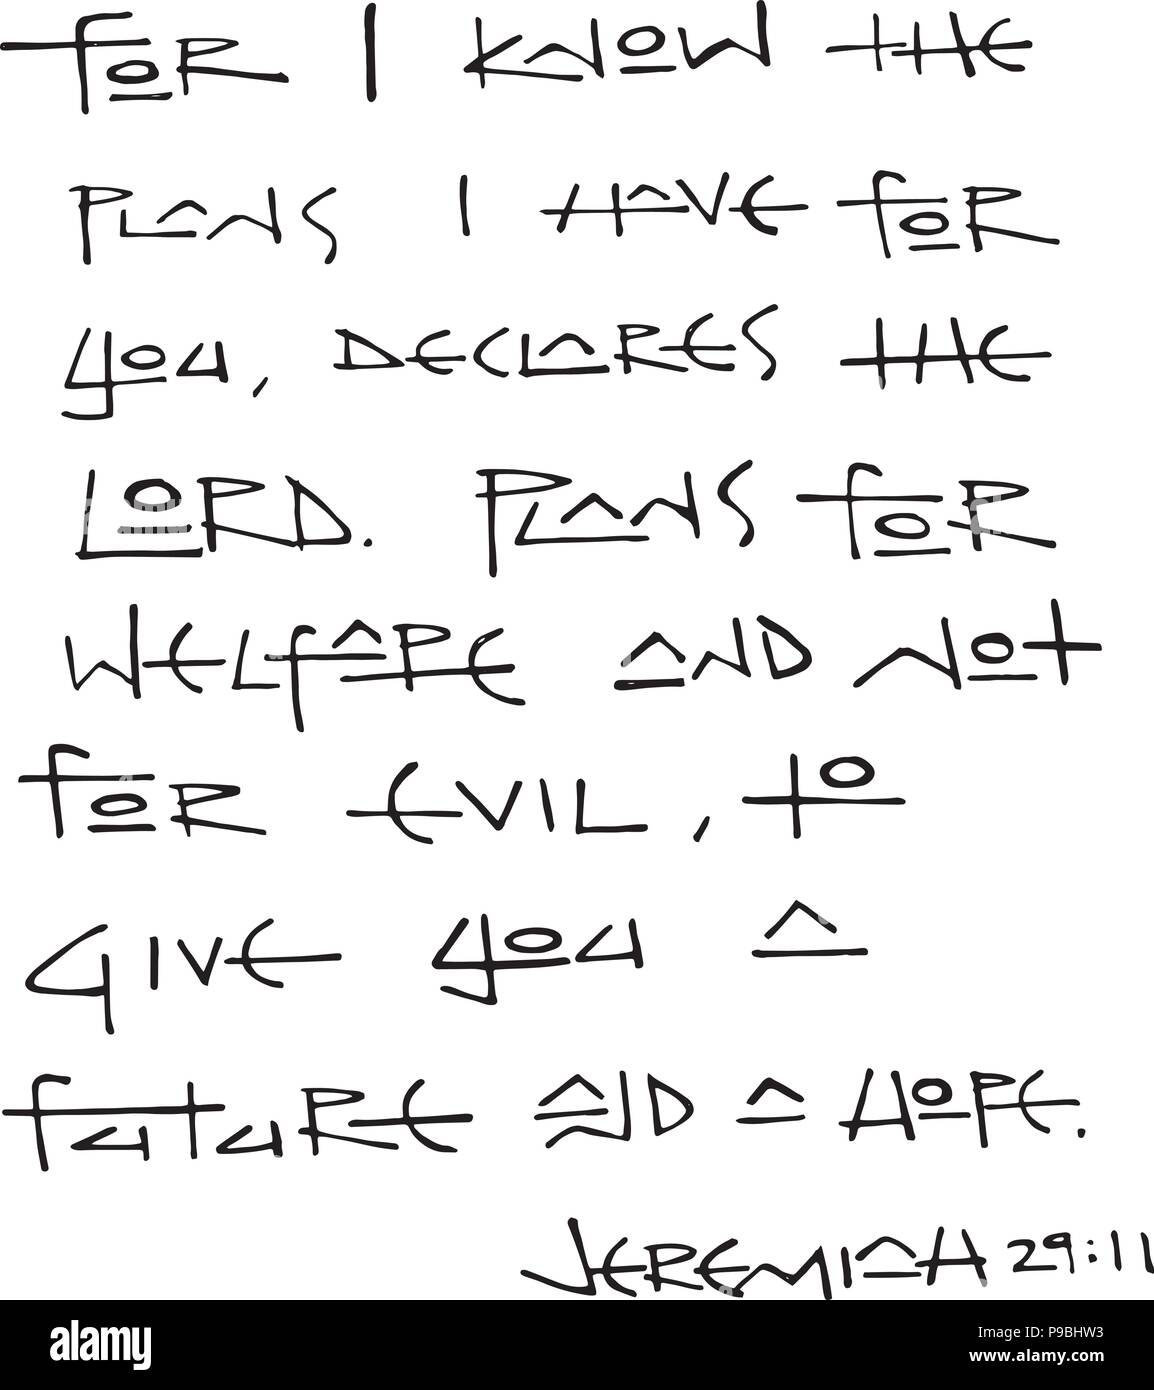 FOR I KNOW THE
PLANS I HAVE FOR
YOU, DECLARES THE
LORD. PLANS FOR
WELFARE AND NOT
FOR EVIL, TO
GIVE YOU A
FUTURE AND A HOPE.
JEREMIAH 29:11
alamy
Image ID: P9BHW3
www.alamy.com